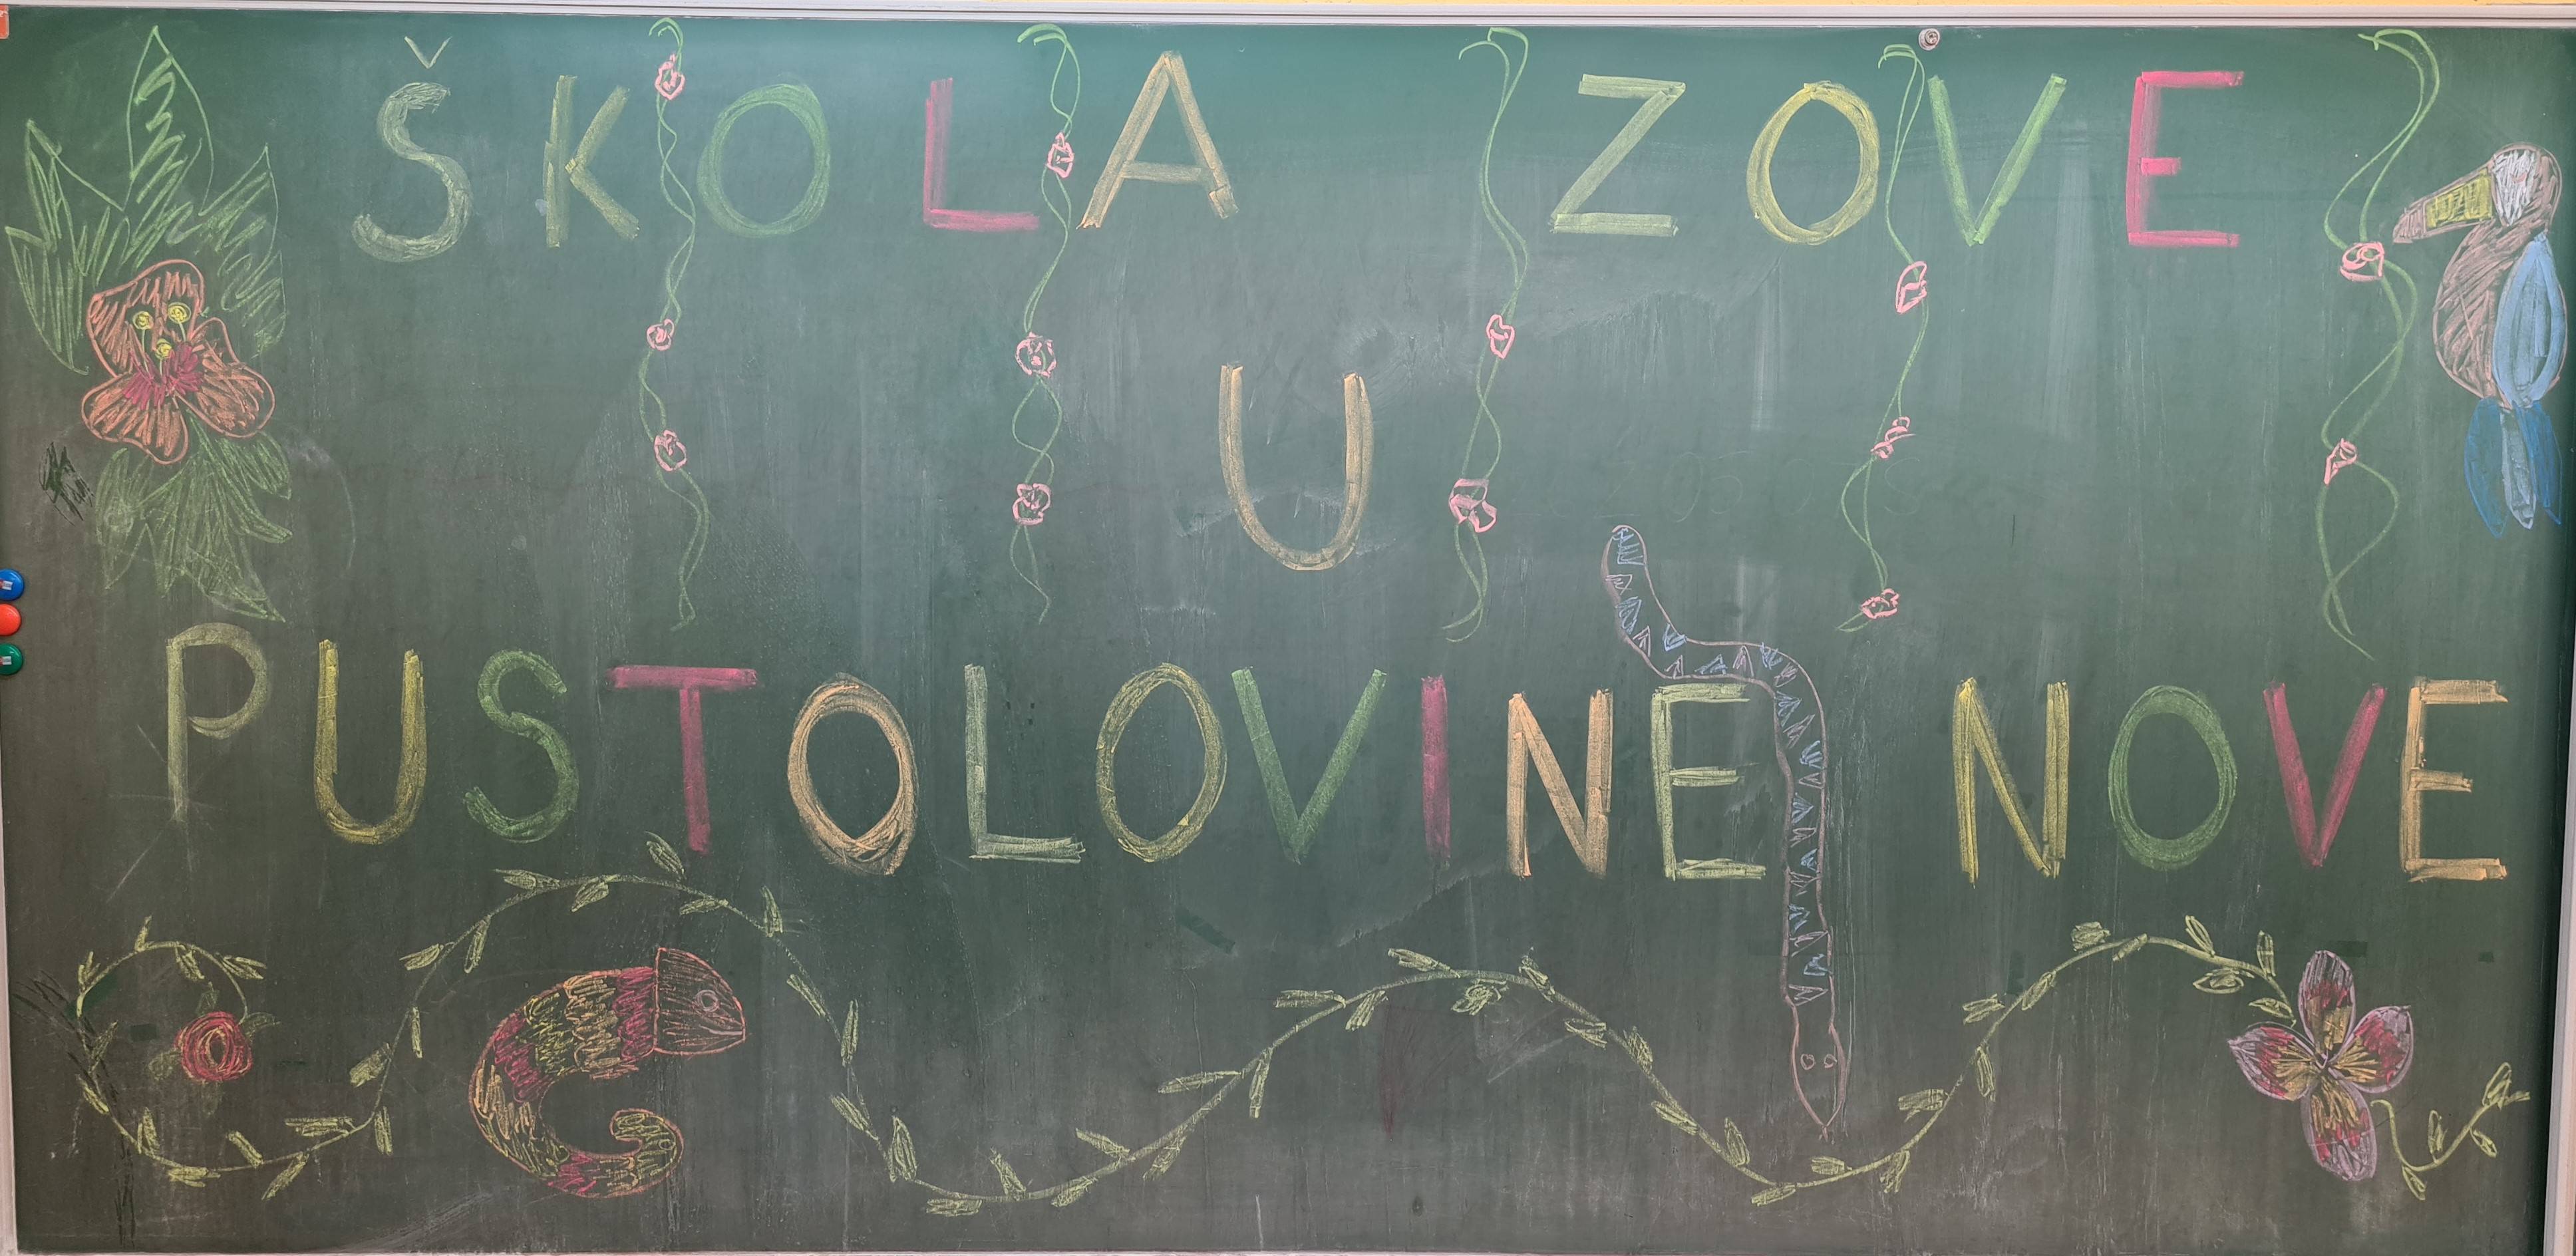 ŠKOLA ZOVE
U
PUSTOLOVINE NOVE